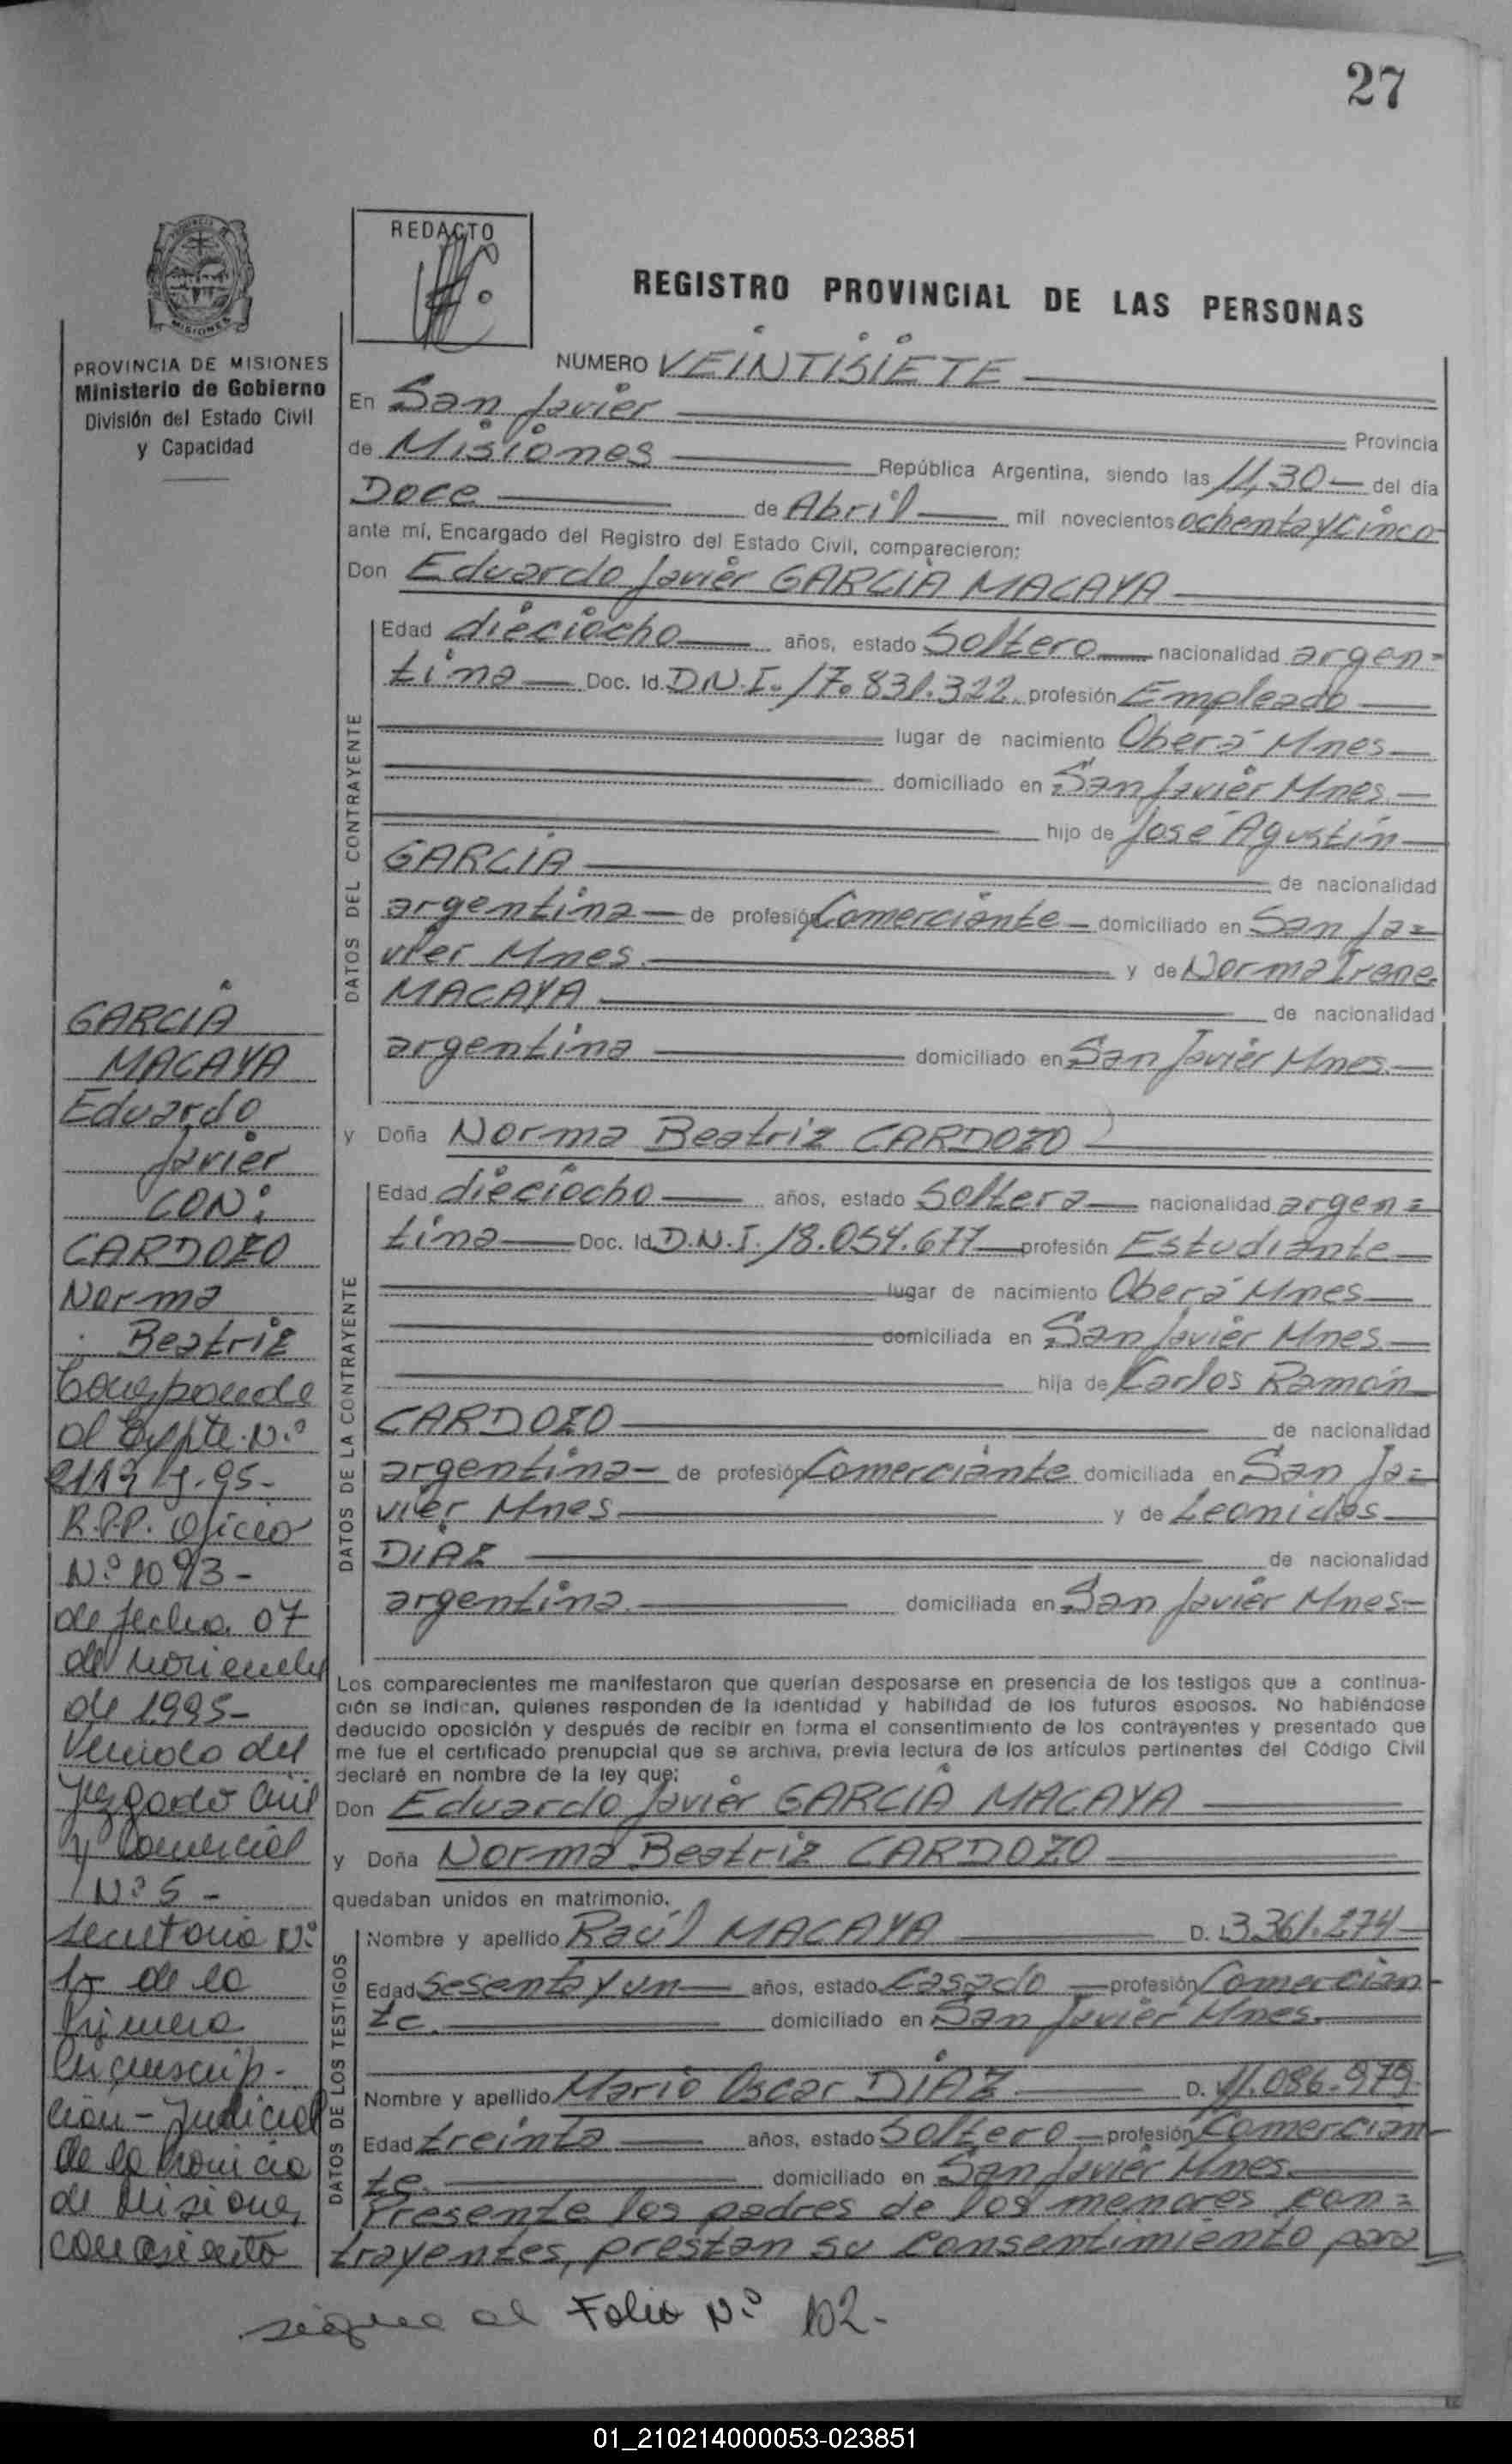 27
REDACTO
REGISTRO PROVINCIAL DE LAS PERSONAS
PROVINCIA DE MISIONES
Ministerio de Gobierno
División del Estado Civil
y Capacidad
NUMERO VEINTISIETE
En San Javier Provincia
de Misiones República Argentina, siendo las 11,30 del día
Doce de Abril mil novecientos ochenta y cinco
ante mí, Encargado del Registro del Estado Civil, comparecieron:
Don Eduardo Javier GARCIA MACAYA
DATOS DEL CONTRAYENTE
Edad dieciocho años, estado Soltero nacionalidad argen=
tina Doc. Id. D.N.I. 17.831.322 profesión Empleado
lugar de nacimiento Oberá Mnes
domiciliado en San Javier Mnes.
hijo de José Agustín
GARCIA de nacionalidad
argentina de profesión Comerciante domiciliado en San Ja=
vier Mnes. y de Norma Irene
MACAYA de nacionalidad
argentina domiciliado en San Javier Mnes.
y Doña Norma Beatriz CARDOZO
DATOS DE LA CONTRAYENTE
Edad dieciocho años, estado Soltera nacionalidad argen=
tina Doc. Id. D.N.I. 18.054.677 profesión Estudiante
lugar de nacimiento Oberá Mnes
domiciliada en San Javier Mnes.
hija de Carlos Ramón
CARDOZO de nacionalidad
argentina de profesión Comerciante domiciliada en San Ja=
vier Mnes y de Leonidas
DIAZ de nacionalidad
argentina. domiciliada en San Javier Mnes
Los comparecientes me manifestaron que querían desposarse en presencia de los testigos que a continua-
ción se indican, quienes responden de la identidad y habilidad de los futuros esposos. No habiéndose
deducido oposición y después de recibir en forma el consentimiento de los contrayentes y presentado que
me fue el certificado prenupcial que se archiva, previa lectura de los artículos pertinentes del Código Civil
declaré en nombre de la ley que:
Don Eduardo Javier GARCIA MACAYA
y Doña Norma Beatriz CARDOZO
quedaban unidos en matrimonio.
DATOS DE LOS TESTIGOS
Nombre y apellido Raúl MACAYA D. 3.361.274
Edad Sesenta y un años, estado Casado profesión Comercian
te. domiciliado en San Javier Mnes.
Nombre y apellido Mario Oscar DIAZ D. 11.086.979
Edad treinta años, estado Soltero profesión Comercian
te. domiciliado en San Javier Mnes.
Presente los padres de los menores con=
trayentes, prestan su consentimiento para
GARCIA
MACAYA
Eduardo
Javier
CON:
CARDOZO
Norma
Beatriz
Corresponde
al Expte. Nº
R.P.P. Oficio
Nº 1093-
de fecha 07
de noviembre
de 1995-
Venido del
Juzgado Civil
y Comercial
Nº 5 -
Secretaria Nº
1 de la
Primera
Circunscrip-
ción - Judicial
de la Provincia
de Misiones,
con asiento
sigue al Folio Nº 102-
01_210214000053-023851